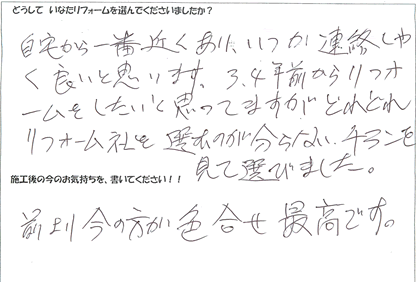 どうして いなたリフォームを選んでくださいましたか?
自宅から一番近くあり、いつか連絡しや
く良いと思います。3、4年前からリフォ
ームをしたいと思ってますがどれどれ
リフォーム社を選むのが分らない。チラシを
見て選びました。
施工後の今のお気持ちを、書いてください!!
前より今の方が色合せ最高です。